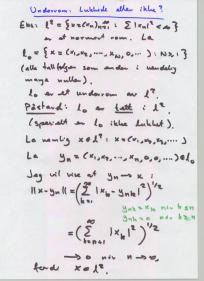 Underrom: Lukkede eller ikke?
Eks: l² = {x=(xₙ)ₙ₌₁^∞ : Σ|xₙ|² < ∞}
er et normert rom. La
l₀ = {x = (x₁, x₂, ..., x_N, 0, ...) : N ≥ 1}
(alle tallfølger som ender i uendelig
mange nuller).
l₀ er et underrom av l².
Påstand: l₀ er tett i l².
(spesielt er l₀ ikke lukket).
La nemlig x ∈ l² : x = (x₁, x₂, ...)
La yₙ = (x₁, x₂, ..., xₙ, 0, 0, ...) ∈ l₀
Jeg vil vise at yₙ → x :
||x - yₙ|| = (Σ_{k=1}^∞ |x_k - y_{nk}|²)^{1/2}
y_{nk} = x_k når k ≤ n
y_{nk} = 0 når k > n
= (Σ_{k=n+1}^∞ |x_k|²)^{1/2}
→ 0 når n → ∞,
fordi x ∈ l².